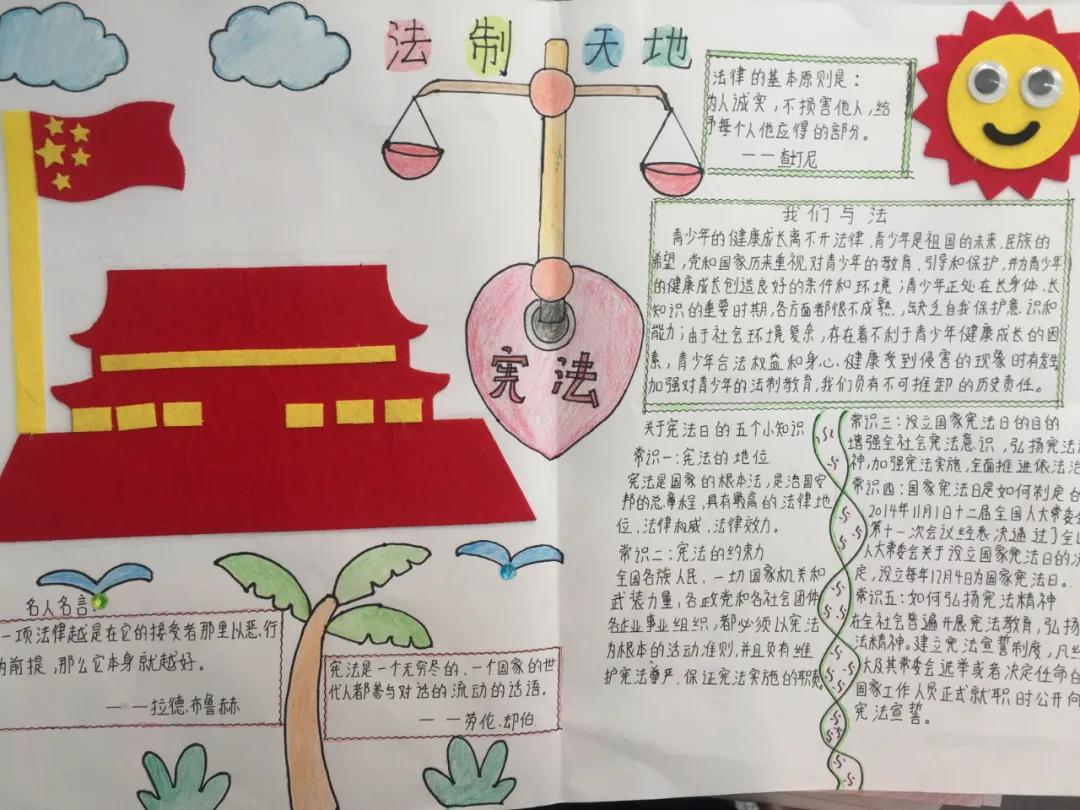 法制天地
法律的基本原则是:
为人诚实,不损害他人,给
予每个人他应得的部分。
——查士丁尼
宪法
我们与法
青少年的健康成长离不开法律、青少年是祖国的未来、民族的
希望,党和国家历来重视对青少年的教育、引导和保护,并为青少年
的健康成长创造良好的条件和环境;青少年正处在长身体、长
知识的重要时期,各方面都很不成熟,缺乏自我保护意识和
能力;由于社会环境复杂,存在着不利于青少年健康成长的因
素,青少年合法权益和身心健康受到侵害的现象时有发生
加强对青少年的法制教育,我们负有不可推卸的历史责任。
关于宪法日的五个小知识
常识一:宪法的地位
宪法是国家的根本法,是治国安
邦的总章程,具有最高的法律地
位、法律权威、法律效力。
常识二:宪法的约束力
全国各族人民、一切国家机关和
武装力量,各政党和各社会团体
各企业事业组织,都必须以宪法
为根本的活动准则,并且负有维
护宪法尊严、保证宪法实施的职责
常识三:设立国家宪法日的目的
增强全社会宪法意识,弘扬宪法
神,加强宪法实施,全面推进依法治
常识四:国家宪法日是如何制定的
2014年11月1日十二届全国人大常委会
第十一次会议经表决通过了全
人大常委会关于设立国家宪法日的决
定,设立每年12月4日为国家宪法日。
常识五:如何弘扬宪法精神
在全社会普遍开展宪法教育,弘扬
法精神。建立宪法宣誓制度,凡经
大及其常委会选举或者决定任命的
国家工作人员正式就职时公开向
宪法宣誓。
名人名言:
一项法律越是在它的接受者那里以恶行
为前提,那么它本身就越好。
——拉德.布鲁赫
宪法是一个无穷尽的、一个国家的世
代人都参与对话的流动的话语。
——劳伦.却伯